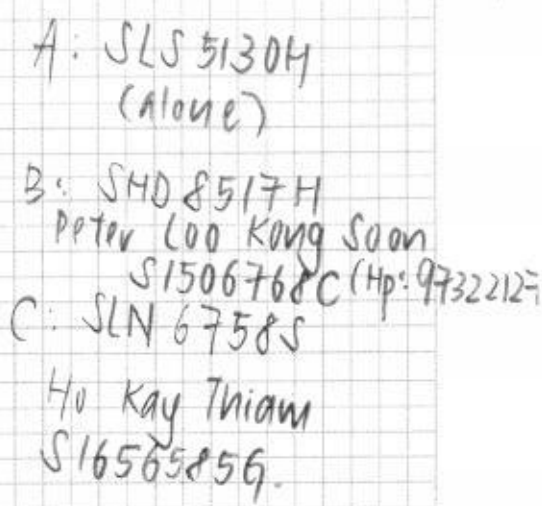 A: SLS 5130H
(alone)
B: SHD 8517H
Peter Loo Kong Soon
S1506768C (Hp: 97322127
C: SLN 6758S
Ho Kay Thiam
S1656585G.